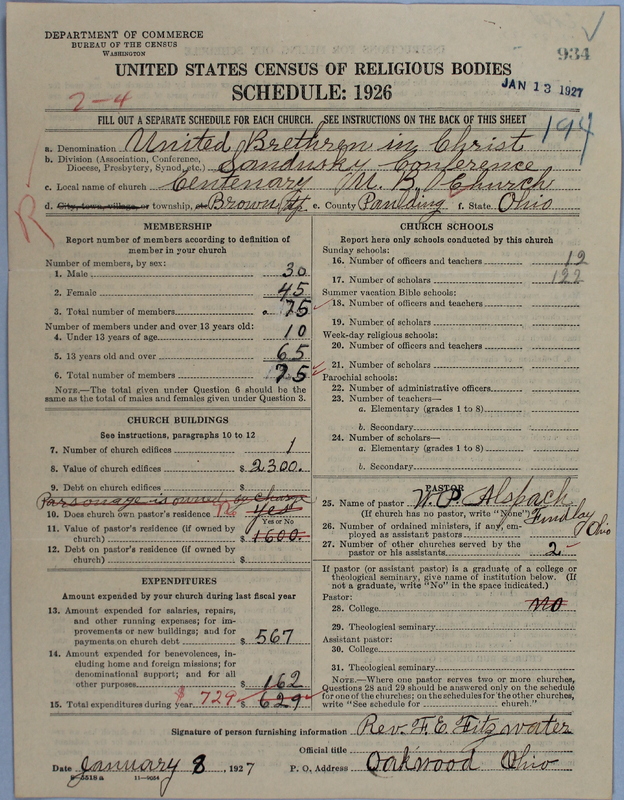 DEPARTMENT OF COMMERCE
BUREAU OF THE CENSUS
WASHINGTON
934
UNITED STATES CENSUS OF RELIGIOUS BODIES
JAN 13 1927
SCHEDULE: 1926
2-4
FILL OUT A SEPARATE SCHEDULE FOR EACH CHURCH. SEE INSTRUCTIONS ON THE BACK OF THIS SHEET
194
a. Denomination United Brethren in Christ
b. Division (Association, Conference, Diocese, Presbytery, Synod, etc.) Sandusky Conference
c. Local name of church Centenary U. B. Church
d. City, town, village, or township, etc. Brown Tp e. County Paulding f. State Ohio
R
MEMBERSHIP
Report number of members according to definition of
member in your church
Number of members, by sex:
1. Male 30
2. Female 45
3. Total number of members 75
Number of members under and over 13 years old:
4. Under 13 years of age 10
5. 13 years old and over 65
6. Total number of members 75
NOTE.—The total given under Question 6 should be the
same as the total of males and females given under Question 3.
CHURCH BUILDINGS
See instructions, paragraphs 10 to 12
7. Number of church edifices 1
8. Value of church edifices $ 2300.
9. Debt on church edifices $
Parsonage is owned by charge
10. Does church own pastor's residence No Yes
Yes or No
11. Value of pastor's residence (if owned by
church) $ 1600.
12. Debt on pastor's residence (if owned by
church) $
EXPENDITURES
Amount expended by your church during last fiscal year
13. Amount expended for salaries, repairs,
and other running expenses; for im-
provements or new buildings; and for
payments on church debt $ 567
14. Amount expended for benevolences, in-
cluding home and foreign missions; for
denominational support; and for all
other purposes $ 162
15. Total expenditures during year $ 729 $ 629
CHURCH SCHOOLS
Report here only schools conducted by this church
Sunday schools:
16. Number of officers and teachers 12
17. Number of scholars 122
Summer vacation Bible schools:
18. Number of officers and teachers
19. Number of scholars
Week-day religious schools:
20. Number of officers and teachers
21. Number of scholars
Parochial schools:
22. Number of administrative officers
23. Number of teachers—
a. Elementary (grades 1 to 8)
b. Secondary
24. Number of scholars—
a. Elementary (grades 1 to 8)
b. Secondary
PASTOR
25. Name of pastor W. P. Alspach
(If church has no pastor, write "None") Findlay Ohio
26. Number of ordained ministers, if any, em-
ployed as assistant pastors
27. Number of other churches served by the
pastor or his assistants 2
If pastor (or assistant pastor) is a graduate of a college or
theological seminary, give name of institution below. (If
not a graduate, write "No" in the space indicated.)
Pastor:
28. College No
29. Theological seminary
Assistant pastor:
30. College
31. Theological seminary
NOTE.—Where one pastor serves two or more churches,
Questions 28 and 29 should be answered only on the schedule
for one of the churches; on the schedules for the other churches,
write "See schedule for church."
Signature of person furnishing information Rev. F. E. Fitzwater
Official title
Date January 8, 1927 P. O. Address Oakwood Ohio
8-5518 a 11-9034